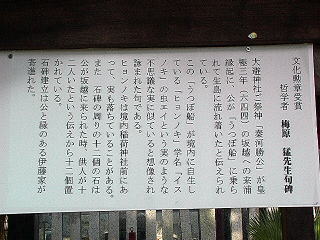 文化勲章受賞
哲学者　梅原　猛先生句碑
大避神社ご祭神「秦河勝公」が皇
極三年（六四四）の坂越への来浦
縁起に、公が「うつぼ船」に乗ら
れて生島に流れ着いたと伝えられ
ている。
この「うつぼ船」が境内に自生し
ている「ヒョンノキ」（学名「イス
ノキ」）の虫エイという実のような
不思議な実に似ていると想像され
詠まれた句である。
ヒョンノキは境内稲荷神社前にあ
って、実も落ちていることがある。
また、石碑の周りの十二個の石は
公が坂越に来られた時、供人が十
二人いたという伝えから十二個置
かれている。
石碑建立は公と縁のある伊藤家が
寄進れた。